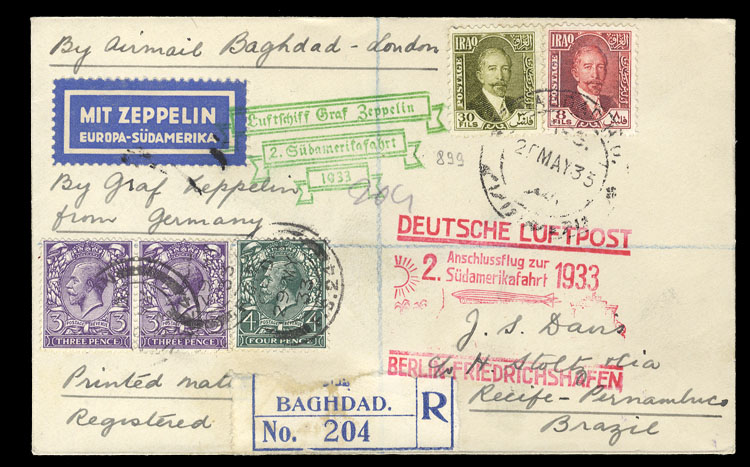 By Airmail Baghdad - London
MIT ZEPPELIN
EUROPA-SÜDAMERIKA
Luftschiff Graf Zeppelin
2. Südamerikafahrt
1933
IRAQ العراق
POSTAGE
30 FILS
IRAQ العراق
POSTAGE
8 FILS
899
20 MAY 33
By Graf Zeppelin
from Germany
DEUTSCHE LUFTPOST
2. Anschlussflug zur
Südamerikafahrt 1933
BERLIN-FRIEDRICHSHAFEN
3 POSTAGE REVENUE 3
THREE PENCE
3 POSTAGE REVENUE 3
THREE PENCE
4 POSTAGE REVENUE 4
FOUR PENCE
J. S. Davis
c/o H. Stoltz & Cia
Recife - Pernambuco
Brazil
Printed
Registered
BAGHDAD.
No. 204
R